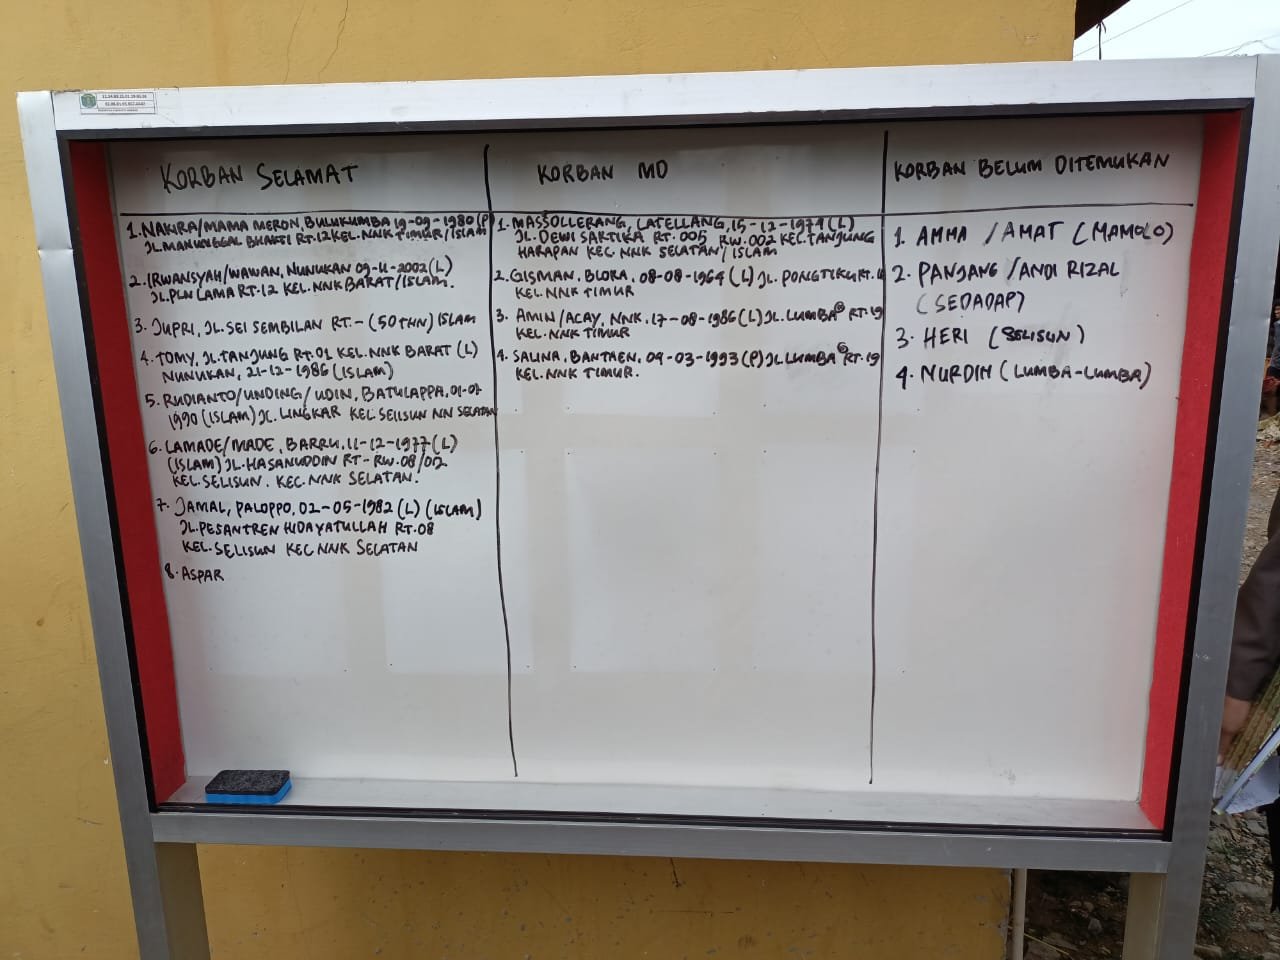 KORBAN SELAMAT
1. NAKIRA/MAMA MERON, BULUKUMBA 19-09-1980 (P)
JL.MANUNGGAL BHAKTI RT.12 KEL.NNK TIMUR/ISLAM
2. IRWANSYAH/WAWAN, NUNUKAN 09-11-2002 (L)
JL.PLN LAMA RT.12 KEL.NNK BARAT/ISLAM.
3. JUPRI, JL.SEI SEMBILAN RT.- (50 THN) ISLAM
4. TOMY, JL.TANJUNG RT.01 KEL.NNK BARAT (L)
NUNUKAN, 21-12-1986 (ISLAM)
5. RUDIANTO/UNDING/UDIN, BATULAPPA, 01-07
1990 (ISLAM) JL. LINGKAR KEL.SELISUN NN SELATAN
6. LAMADE/MADE, BARRU, 11-12-1977 (L)
(ISLAM) JL.HASANUDDIN RT- RW.08/02
KEL.SELISUN. KEC.NNK SELATAN.
7. JAMAL, PALOPPO, 02-05-1982 (L) (ISLAM)
JL.PESANTREN HIDAYATULLAH RT.08
KEL.SELISUN KEC NNK SELATAN
8. ASPAR
KORBAN MD
1. MASSOLLERANG, LATELLANG, 15-12-1974 (L)
JL. DEWI SARTIKA RT.005 RW.002 KEC.TANJUNG
HARAPAN KEC.NNK SELATAN/ISLAM
2. GISMAN, BLORA, 08-08-1964 (L) JL. PONGTIKU RT.11
KEL.NNK TIMUR
3. AMIN/ACAY, NNK, 17-08-1986 (L) JL.LUMBA² RT.19
KEL.NNK TIMUR
4. SALINA, BANTAEN, 04-03-1993 (P) JL LUMBA² RT.19
KEL.NNK TIMUR.
KORBAN BELUM DITEMUKAN
1. AMMA /AMAT (MAMOLO)
2. PANJANG /ANDI RIZAL
(SEDADAP)
3. HERI (SELISUN)
4. NURDIN (LUMBA-LUMBA)